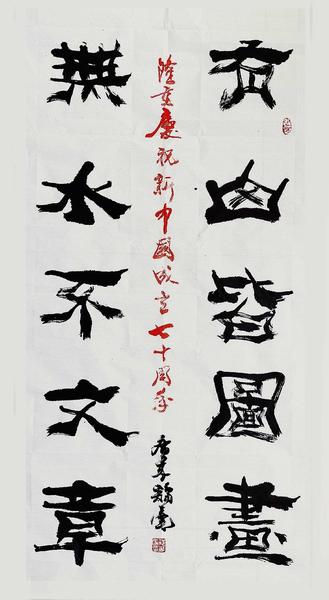 有山皆圖畫
隆重慶祝新中國成立七十周年
無水不文章